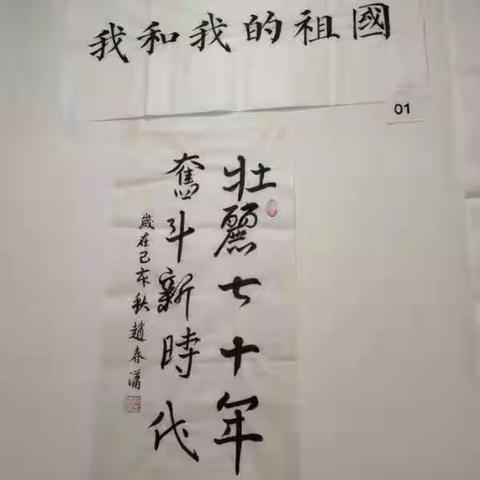 我和我的祖國
01
壯麗七十年
奮斗新時代
歲在己亥秋趙春瀟